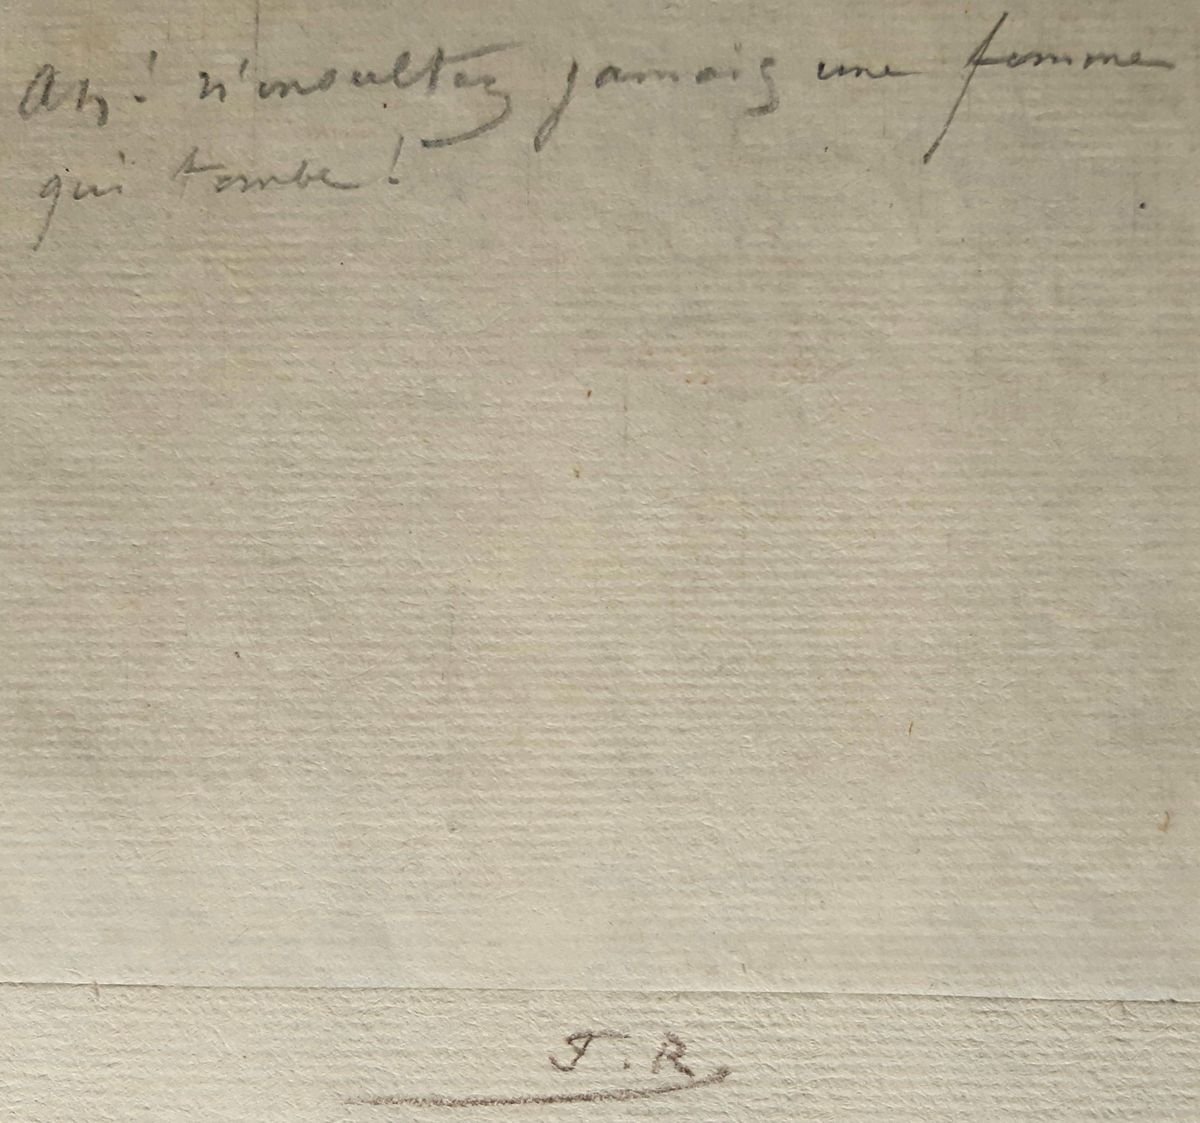 Ah! n'insultez jamais une femme
qui tombe!
F. R